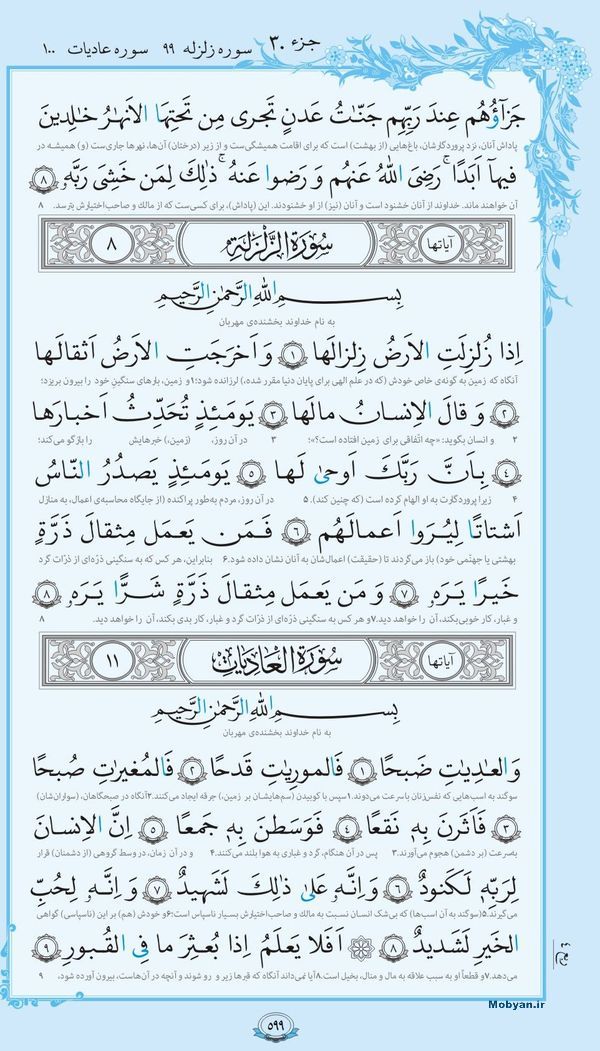 جزء ۳۰ سوره زلزله ۹۹ سوره عادیات ۱۰۰
جَزَآؤُهُم عِندَ رَبِّهِم جَنّٰتُ عَدنٍ تَجری مِن تَحتِهَا الاَنهٰرُ خٰلِدینَ
پاداش آنان، نزد پروردگارشان، باغ‌هایی (از بهشت) است که برای اقامت همیشگی‌ست و از زیر (درختان) آن‌ها، نهرها جاری‌ست (و) همیشه در
فیهآ اَبَدًا ۚ رَضِیَ اللهُ عَنهُم وَ رَضوا عَنهُ ۚ ذٰلِكَ لِمَن خَشِیَ رَبَّه ۸
آن خواهند ماند. خداوند از آنان خشنود است و آنان (نیز) از او خشنودند. این (پاداش)، برای کسی‌ست که از مالك و صاحب‌اختیارش بترسد. ۸
آیاتها سُورَةُ الزَّلزَلَة ۸
بِسمِ اللهِ الرَّحمٰنِ الرَّحیمِ
به نام خداوند بخشنده‌ی مهربان
اِذا زُلزِلَتِ الاَرضُ زِلزالَها ۱ وَ اَخرَجَتِ الاَرضُ اَثقالَها
آنگاه که زمین به گونه‌ی خاص خودش (که در علم الهی برای پایان دنیا مقرر شده،) لرزانده شود؛۱ و زمین، بارهای سنگینِ خود را بیرون بریزد؛
۲ وَ قالَ الاِنسانُ مالَها ۳ یَومَئِذٍ تُحَدِّثُ اَخبارَها
۲ و انسان بگوید: «چه اتّفاقی برای زمین افتاده است؟»؛ ۳ در آن روز، (زمین،) خبرهایش را بازگو می‌کند؛
۴ بِاَنَّ رَبَّكَ اَوحیٰ لَها ۵ یَومَئِذٍ یَصدُرُ النّاسُ
۴ زیرا پروردگارت به او الهام کرده است (که چنین کند). ۵ در آن روز، مردم به‌طور پراکنده (از جایگاه محاسبه‌ی اعمال، به منازل
اَشتاتًا لِیُرَوا اَعمالَهُم ۶ فَمَن یَعمَل مِثقالَ ذَرَّةٍ
بهشتی یا جهنّمی خود) باز می‌گردند تا (حقیقت) اعمال‌شان به آنان نشان داده شود.۶ بنابراین، هر کس که به سنگینی ذرّه‌ای از ذرّات گرد
خَیرًا یَرَه ۷ وَ مَن یَعمَل مِثقالَ ذَرَّةٍ شَرًّا یَرَه ۸
و غبار، کار خوبی بکند، آن را خواهد دید.۷ و هر کس به سنگینی ذرّه‌ای از ذرّات گرد و غبار، کار بدی بکند، آن را خواهد دید. ۸
آیاتها سُورَةُ العادِیات ۱۱
بِسمِ اللهِ الرَّحمٰنِ الرَّحیمِ
به نام خداوند بخشنده‌ی مهربان
وَالعٰدِیٰتِ ضَبحًا ۱ فَالموریٰتِ قَدحًا ۲ فَالمُغیرٰتِ صُبحًا
سوگند به اسب‌هایی که نفس‌زنان باسرعت می‌دوند.۱ سپس با کوبیدن (سم‌هایشان بر زمین،) جرقه ایجاد می‌کنند.۲ آنگاه در صبحگاهان، (سواران‌شان)
۳ فَاَثَرنَ بِه نَقعًا ۴ فَوَسَطنَ بِه جَمعًا ۵ اِنَّ الاِنسانَ
به‌سرعت (بر دشمن) هجوم می‌آورند.۳ پس در آن هنگام، گرد و غباری به هوا بلند می‌کنند.۴ و در آن زمان، در وسط گروهی (از دشمنان) قرار
لِرَبِّه لَكَنودٌ ۶ وَ اِنَّه عَلیٰ ذٰلِكَ لَشَهیدٌ ۷ وَ اِنَّه لِحُبِّ
می‌گیرند.۵ (سوگند به آن اسب‌ها) که بی‌شک انسان نسبت به مالك و صاحب‌اختیارش بسیار ناسپاس است؛۶ و خودش (هم) بر این (ناسپاسی) گواهی
الخَیرِ لَشَدیدٌ ۸ اَفَلا یَعلَمُ اِذا بُعثِرَ ما فِی القُبورِ ۹
می‌دهد.۷ و قطعاً او به سبب علاقه به مال و منال، بخیل است.۸ آیا نمی‌داند آنگاه که قبرها زیر و رو شوند و آنچه در آن‌هاست، بیرون آورده شود، ۹
Mobyan.ir
۵۹۹